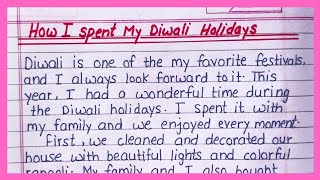 How I spent My Diwali Holidays
Diwali is one of the my favorite festivals,
and I always look forward to it. This
year, I had a wonderful time during
the Diwali holidays. I spent it with
my family and we enjoyed every moment.
First, we cleaned and decorated our
house with beautiful lights and colorful
rangoli. My family and I also bought